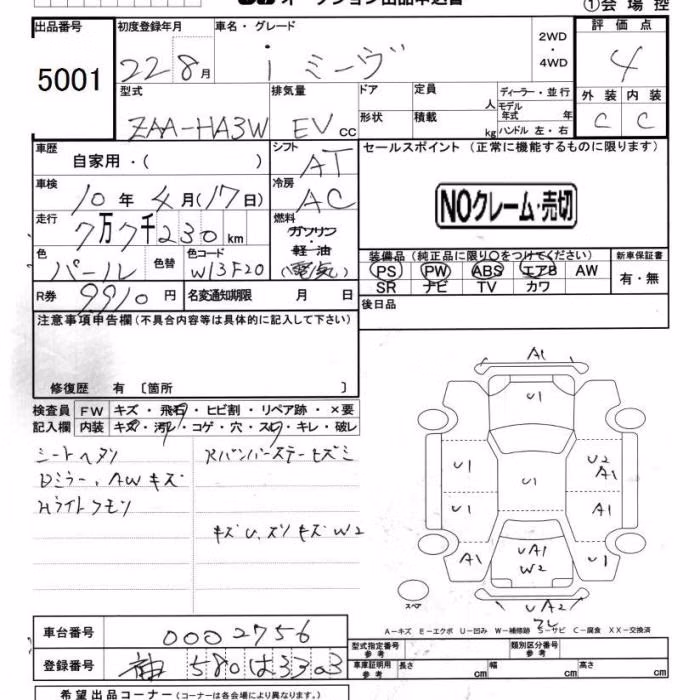 オークション出品申込書
①会場控
出品番号
5001
初度登録年月
22 8月
車名・グレード
i ミーヴ
2WD
・
4WD
評価点
4
型式
ZAA-HA3W
排気量
EV cc
ドア
定員
人
ディーラー・並行
モデル年式
年
形状
積載
kg
ハンドル 左・右
外装 内装
C C
車歴
自家用・( )
シフト
AT
セールスポイント (正常に機能するものに限ります)
NOクレーム・売切
車検
10年4月(17日)
冷房
AC
走行
7万7千230km
燃料
ガソリン
・
軽油
(電気)
色
パール
色替
色コード
W13F20
装備品 (純正品に限り○をつけてください)
新車保証書
PS PW ABS エアB AW
有・無
SR ナビ TV カワ
R券 9910円
名変通知期限 月 日
後日品
注意事項申告欄 (不具合内容等は具体的に記入して下さい)
修復歴 有 〔箇所 〕
検査員 FW キズ・飛石・ヒビ割・リペア跡・×要
記入欄 内装 キズ・汚レ・コゲ・穴・スレ・キレ・破レ
シートヘタリ
Dミラー、AWキズ
Hライトクモリ
Rバンパーステーヒズミ
キズU、ズリキズW2
A1
U1
U1
U1
U2
A1
U1
A1
A1
UA1
W2
U1
UA2
スペア
A-キズ E-エクボ U-凹み W-補修跡 S-サビ C-腐食 XX-交換済
車台番号
0002756
登録番号
580 は 3303
型式指定番号
参考
類別区分番号
参考
車庫証明用
参考
長さ cm
幅 cm
高さ cm
希望出品コーナー (コーナーは各会場により異なります。)